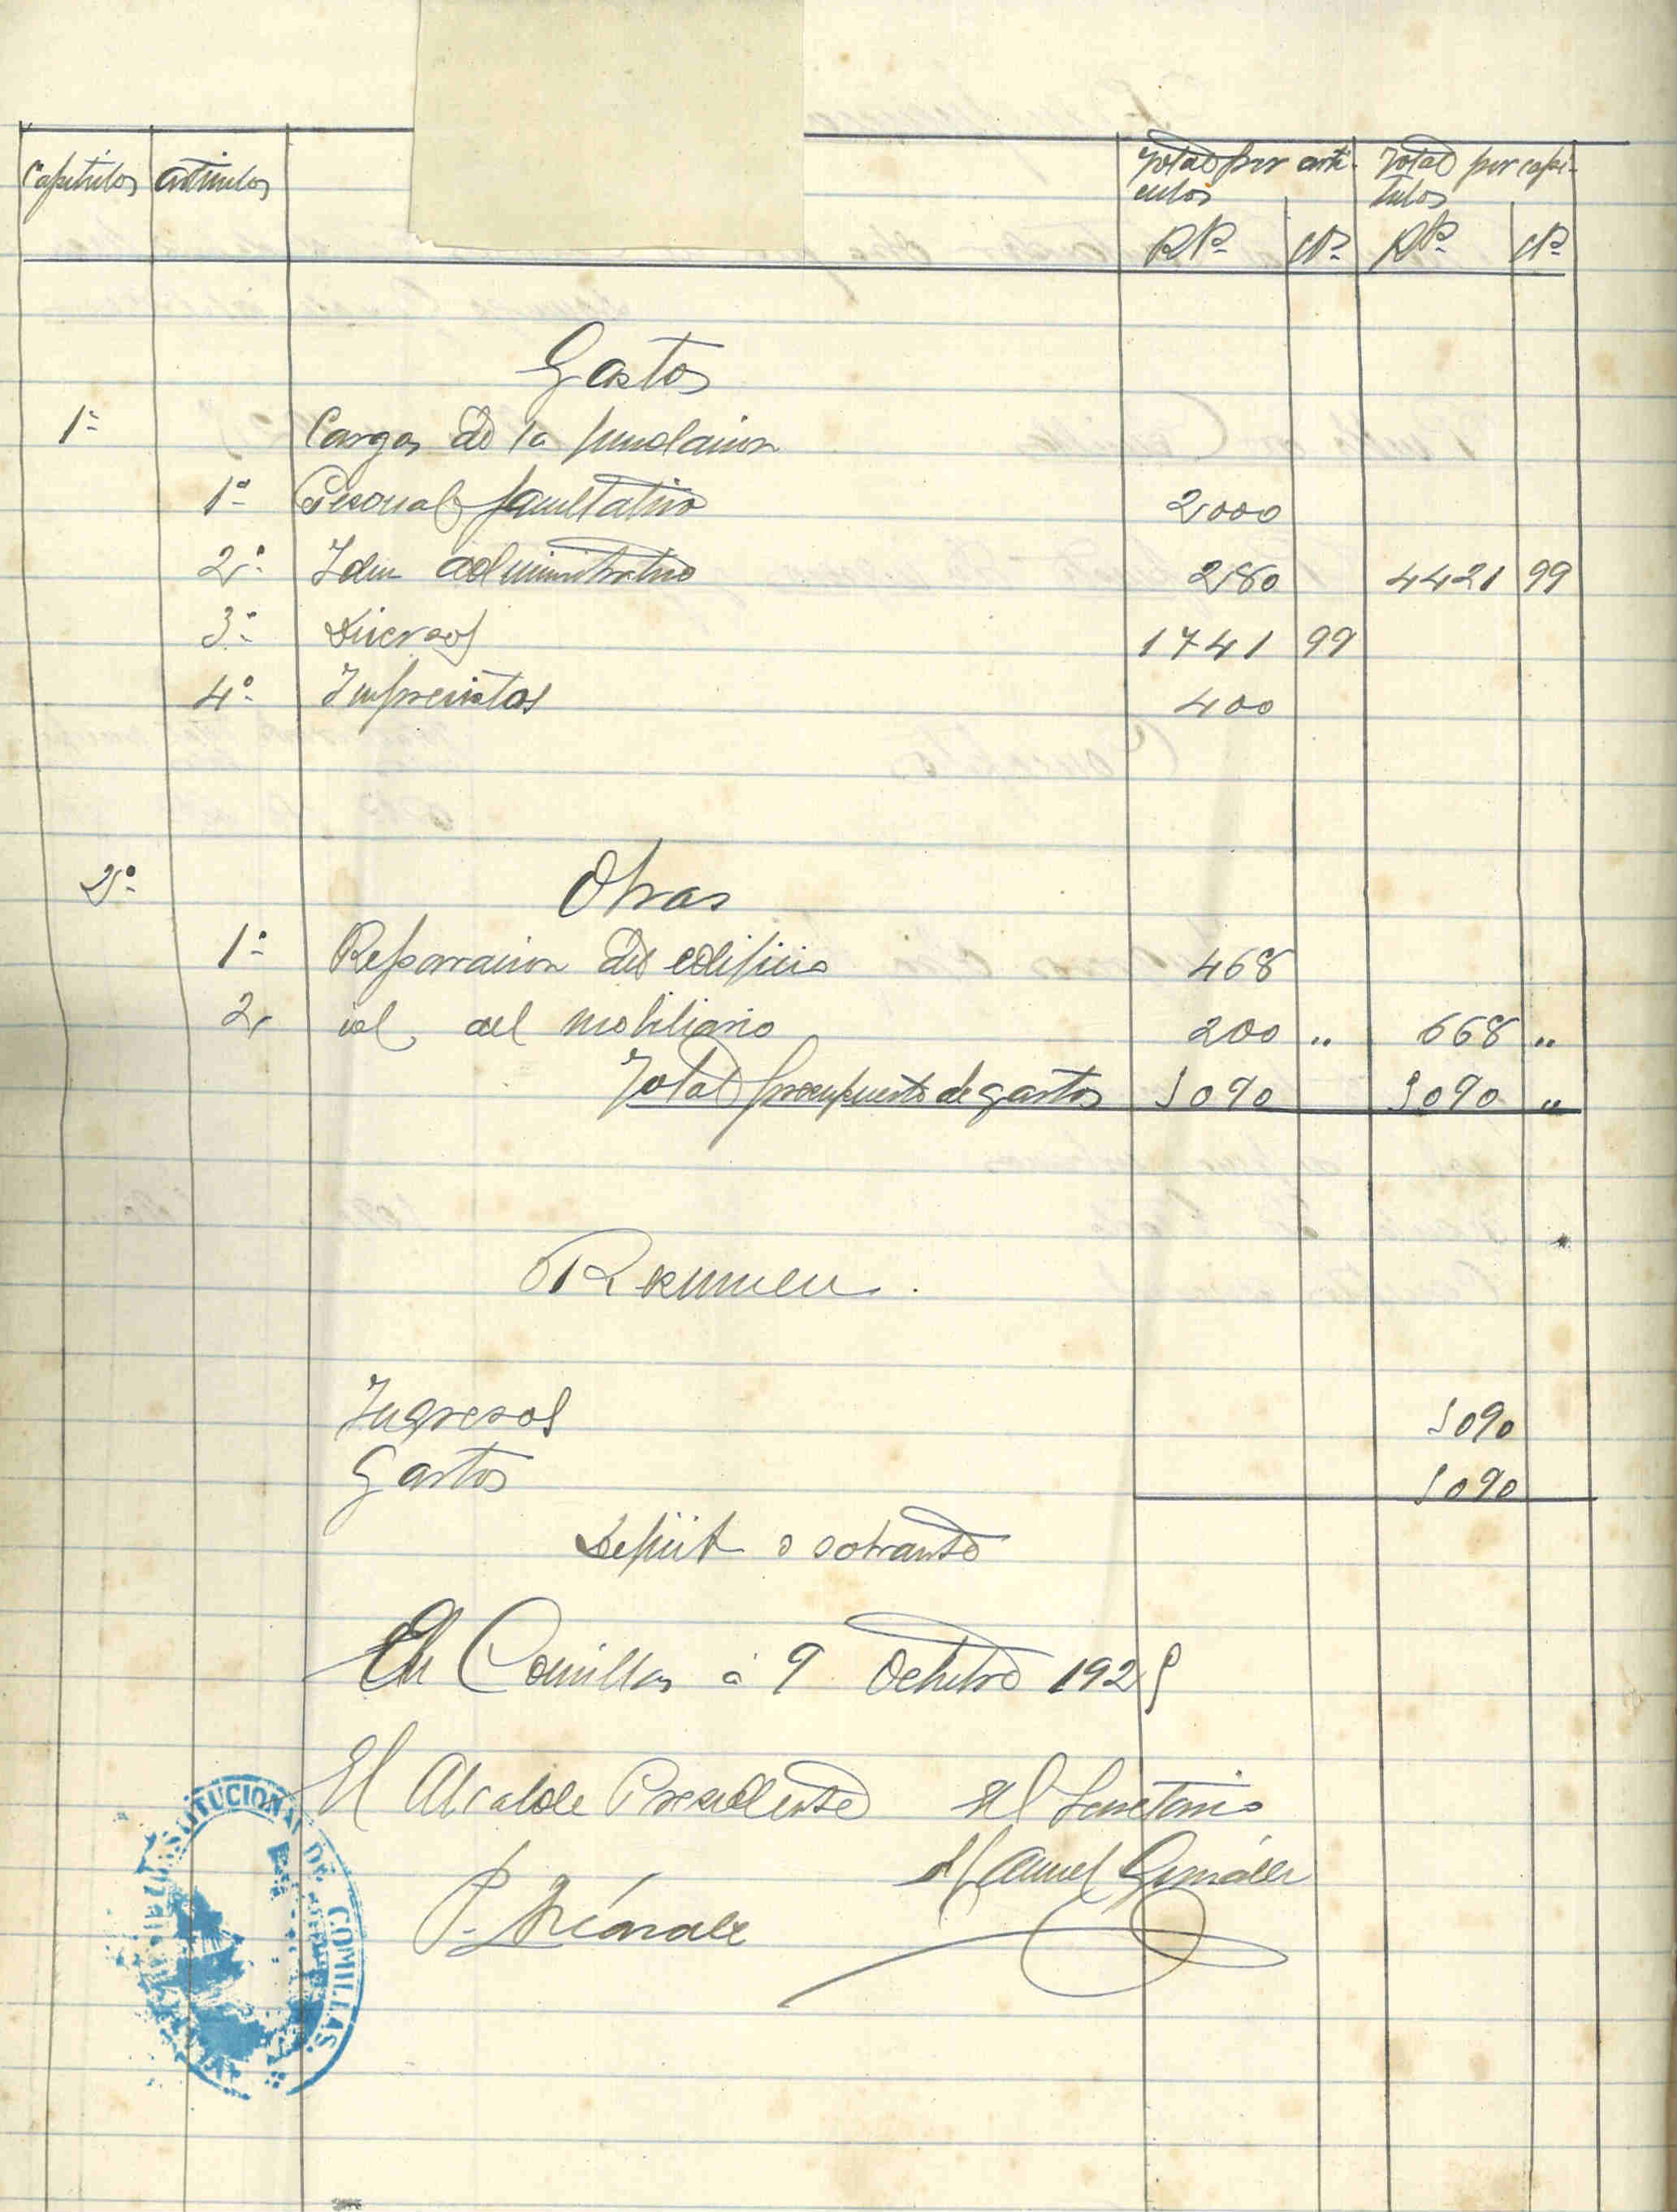 Capitulos articulos Total por arti- Total por capi-
culos tulos
Pts Cts Pts Cts
Gastos
1º Cargas de la fundacion
1º Personal facultativo 2000
2º Idem administrativo 280 4421 99
3º Diversos 1741 99
4º Imprevistos 400
2º Obras
1º Reparracion del edificio 468
2 id del mobiliario 200 " 668 "
Total presupuesto de gastos 5090 5090 "
Resumen.
Ingresos 5090
Gastos 5090
Deficit o sobrante
En Comillas á 9 Octubre 1925
El Alcalde Presidente El Secretario
P. Manuel González
STITUCIONAL DE COMILLAS